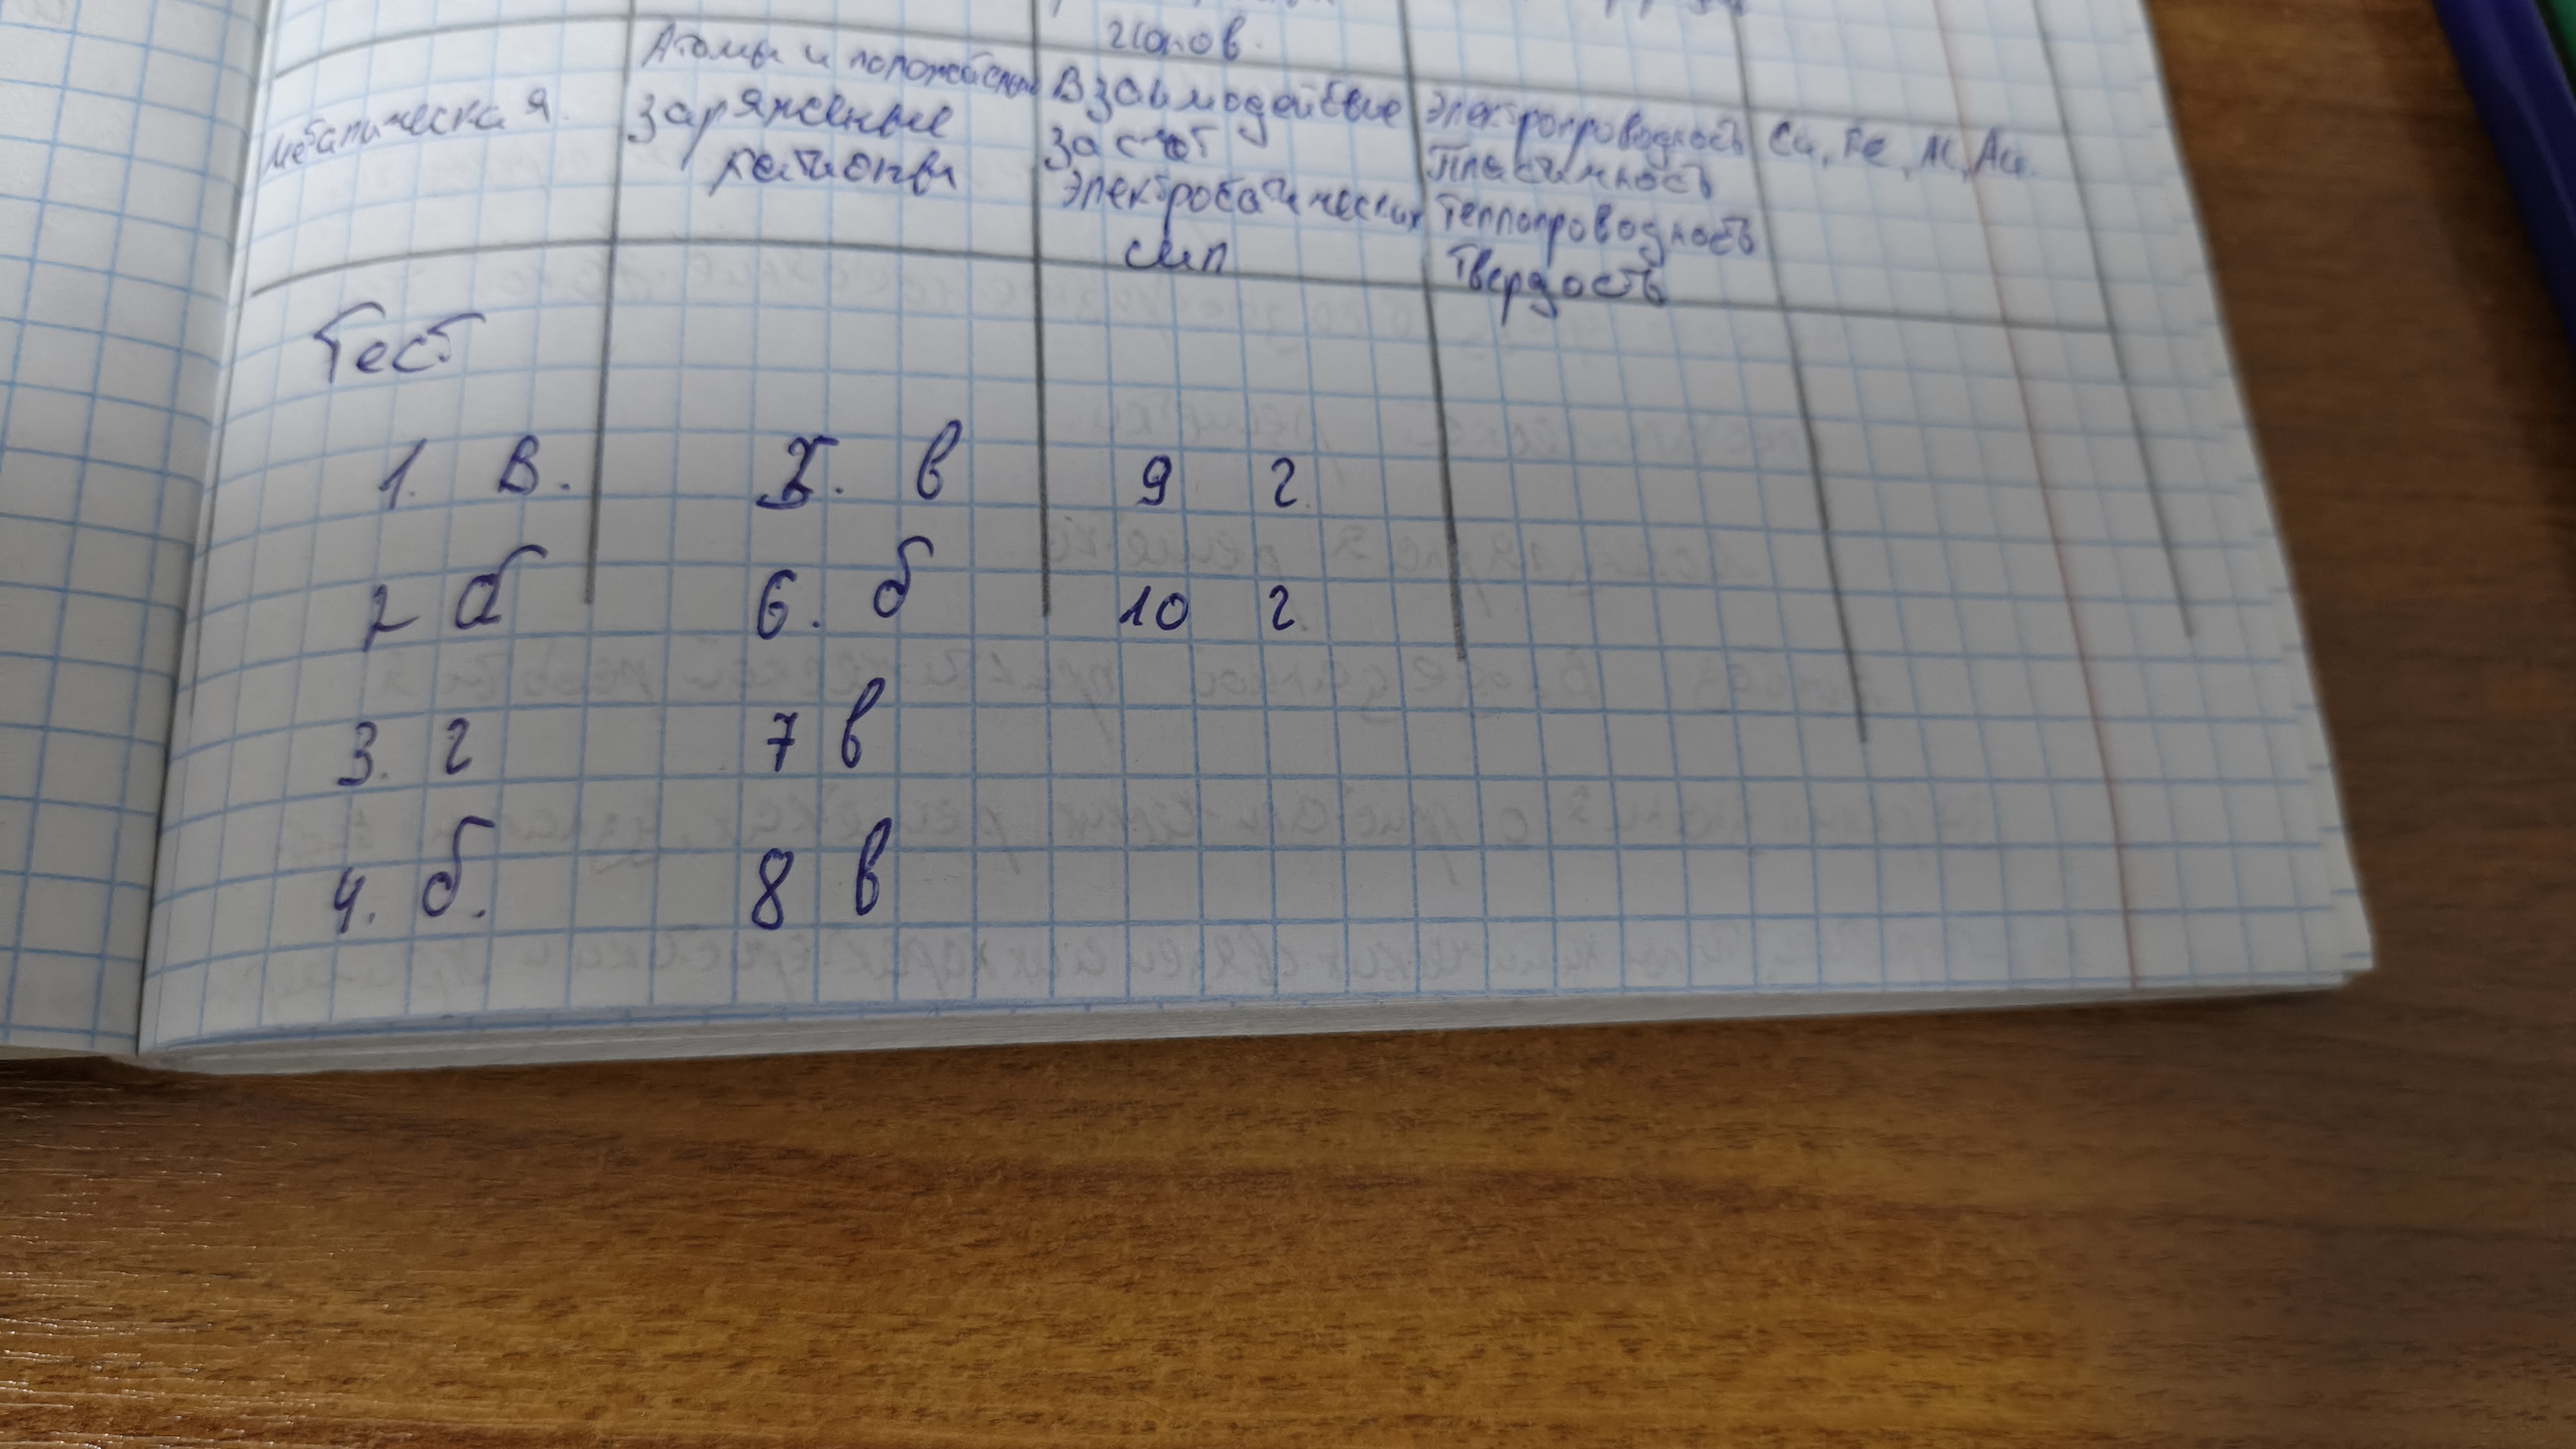 ионов.
Металическая.
Атомы и положительно
заряженные
катионы
Взаимодействие
за счёт
электростатических
сил
Электропроводность
Пластичность
Теплопроводность
Твёрдость
Cu, Fe, Al, Au.
Тест
1. В.
2 б
3. г
4. б.
5. в
6. б
7 в
8 в
9 г.
10 г.